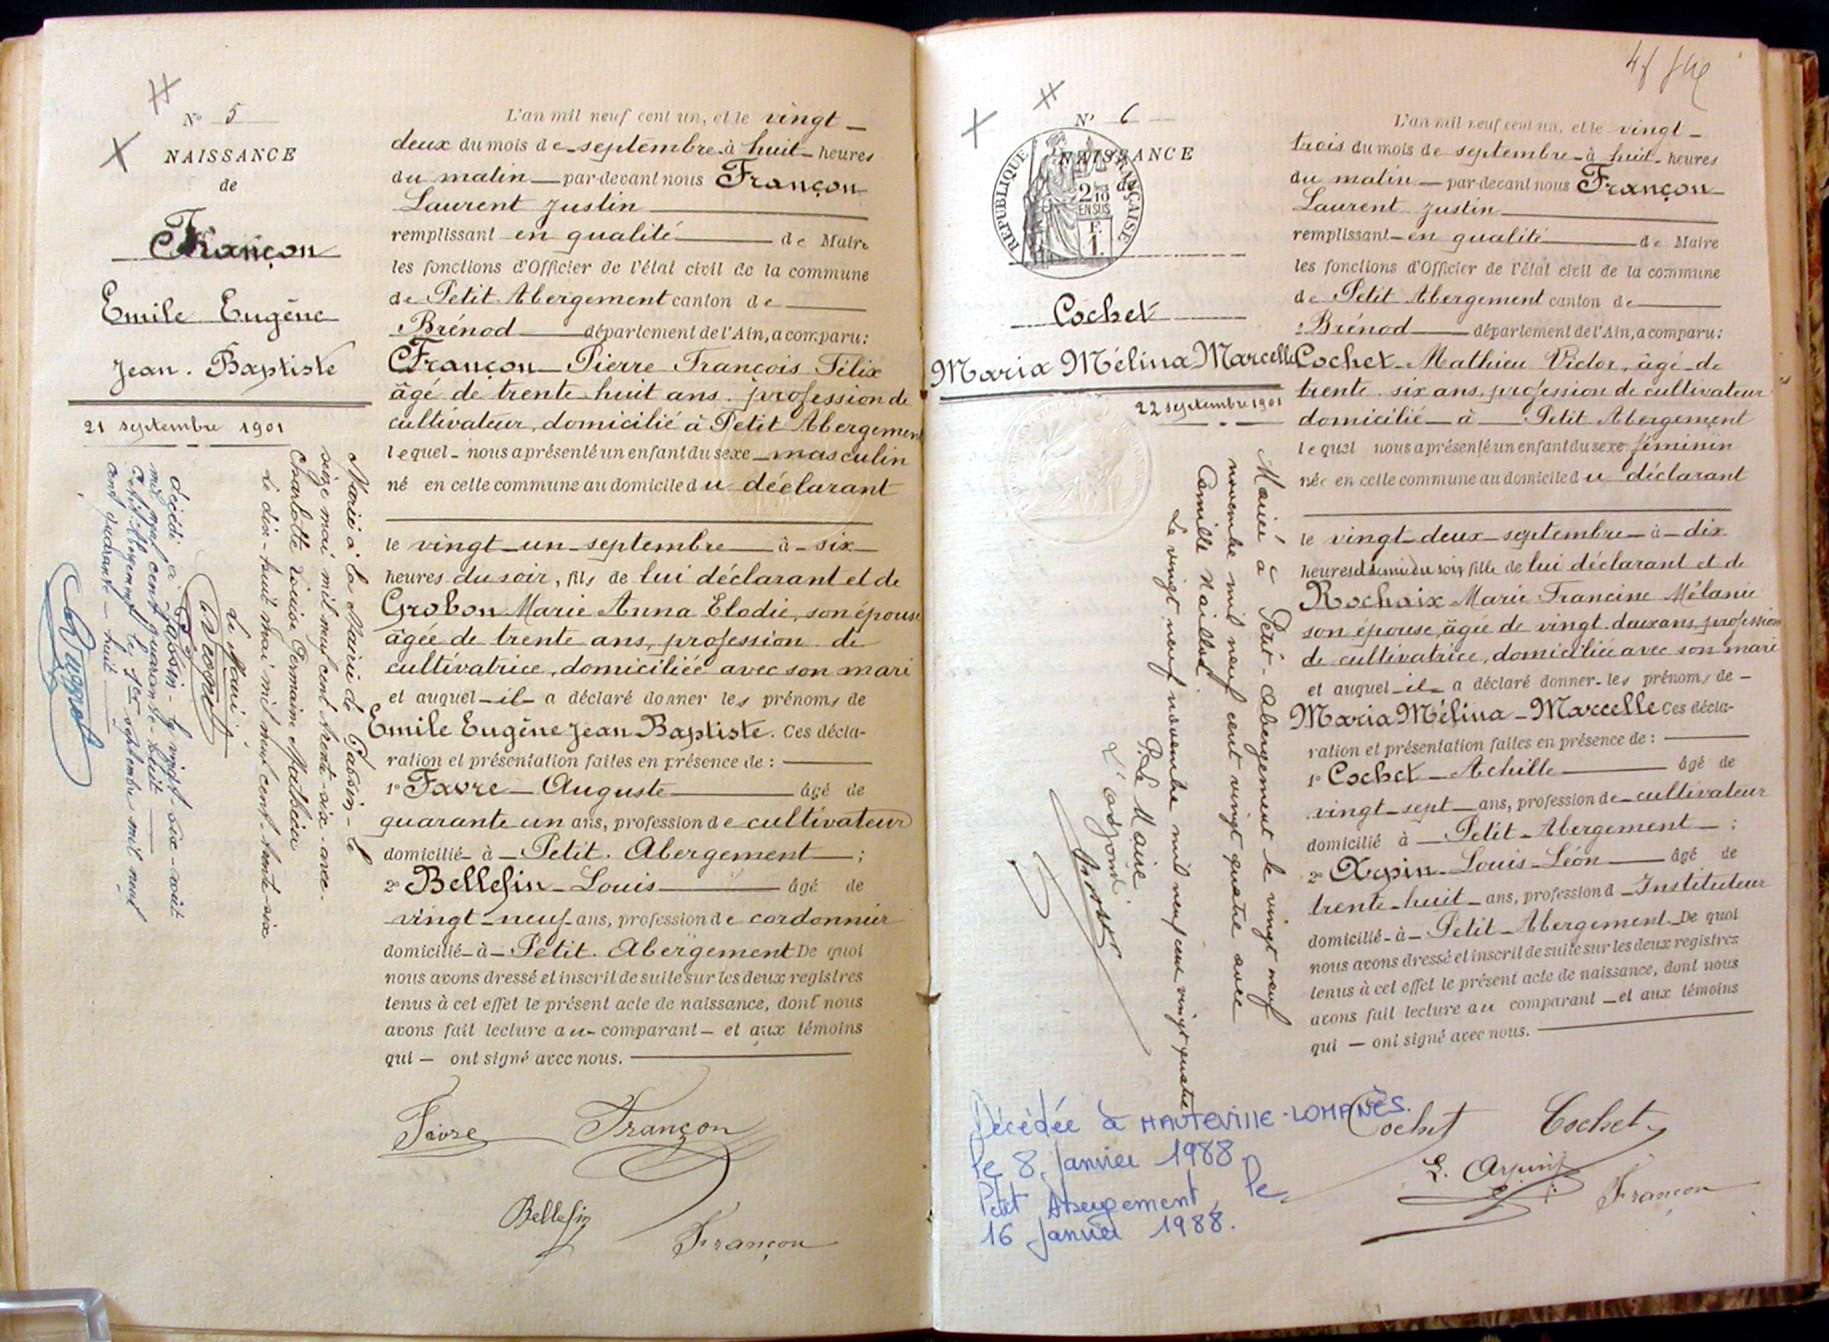 N° 5
NAISSANCE
de
Françon
Emile Eugène
Jean. Baptiste
21 septembre 1901
Marié à la Mairie de Tabsin - le
seize mai mil neuf cent trente-six avec
Charlotte Louise Germaine Mathieu
Le dix-huit mai mil neuf cent trente-six
Le Maire
Décédé à
mil neuf cent quarante-huit
Petit Abergement le septembre mil neuf
cent quarante-huit
L'an mil neuf cent un, et le vingt
deux du mois de septembre à huit heures
du matin par-devant nous Françon
Laurent Justin
remplissant en qualité de Maire
les fonctions d'Officier de l'état civil de la commune
de Petit Abergement canton de
Brénod département de l'Ain, a comparu:
Françon Pierre François Félix
âgé de trente huit ans. profession de
cultivateur, domicilié à Petit Abergement
lequel nous a présenté un enfant du sexe masculin
né en cette commune au domicile du déclarant
le vingt-un septembre à six
heures du soir, fils de lui déclarant et de
Grobon Marie Anna Elodie, son épouse
âgée de trente ans, profession de
cultivatrice, domiciliée avec son mari
et auquel il a déclaré donner les prénoms de
Emile Eugène Jean Baptiste. Ces décla-
ration et présentation faites en présence de :
1° Favre Auguste âgé de
quarante un ans, profession de cultivateur
domicilié à Petit. Abergement ;
2° Bellefin Louis âgé de
vingt-neuf ans, profession de cordonnier
domicilié à Petit. Abergement De quoi
nous avons dressé et inscrit de suite sur les deux registres
tenus à cet effet le présent acte de naissance, dont nous
avons fait lecture au comparant et aux témoins
qui ont signé avec nous.
Favre Françon
Bellefin
Françon
N° 6
NAISSANCE
de
REPUBLIQUE FRANÇAISE
2/10
EN SUS
F.
1
Cochet
Maria Mélina Marcelle
22 septembre 1901
Mariée à Petit-Abergement le vingt neuf
novembre mil neuf cent vingt quatre avec
Camille Maillot
Le vingt neuf novembre mil neuf cent vingt quatre
P. Le Maire
L'adjoint
Décédée à HAUTEVILLE-LOMPNÈS.
le 8 Janvier 1988
Petit Abergement, le
16 Janvier 1988.
L'an mil neuf cent un, et le vingt
trois du mois de septembre à huit heures
du matin par-devant nous Françon
Laurent Justin
remplissant en qualité de Maire
les fonctions d'Officier de l'état civil de la commune
de Petit Abergement canton de
Brénod département de l'Ain, a comparu:
Cochet Mathieu Victor, âgé de
trente six ans, profession de cultivateur
domicilié à Petit Abergement
lequel nous a présenté un enfant du sexe féminin
née en cette commune au domicile du déclarant
le vingt-deux septembre à dix
heures et demie du soir fille de lui déclarant et de
Rochaix Marie Francine Mélanie
son épouse, âgée de vingt deux ans, profession
de cultivatrice, domiciliée avec son mari
et auquel il a déclaré donner les prénoms de
Maria Mélina Marcelle Ces décla-
ration et présentation faites en présence de :
1° Cochet Achille âgé de
vingt-sept ans, profession de cultivateur
domicilié à Petit-Abergement ;
2° Arpin Louis Léon âgé de
trente-huit ans, profession d Instituteur
domicilié à Petit-Abergement De quoi
nous avons dressé et inscrit de suite sur les deux registres
tenus à cet effet le présent acte de naissance, dont nous
avons fait lecture au comparant et aux témoins
qui ont signé avec nous.
Cochet Cochet
L. Arpin
Françon